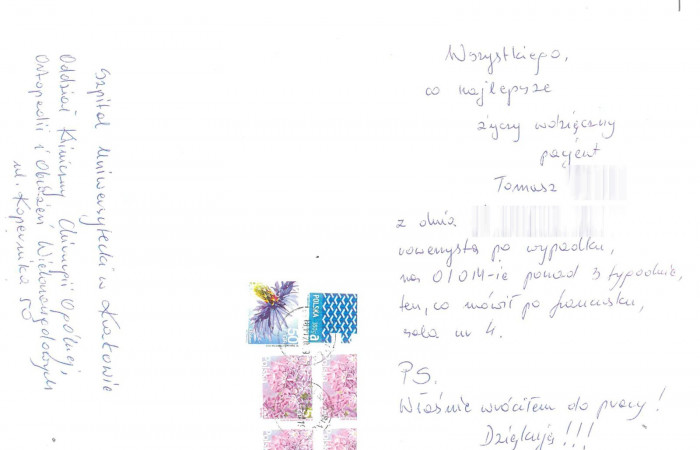 Wszystkiego,
co najlepsze
życzy wdzięczny
pacjent
Tomasz
z dnia
rowerzysta po wypadku,
na OIOM-ie ponad 3 tygodnie,
ten, co mówił po francusku,
sala nr 4.
PS.
Właśnie wróciłem do pracy!
Dziękuję!!!
Szpital Uniwersytecki w Krakowie
Oddział Kliniczny Chirurgii Ogólnej,
Ortopedii i Obrażeń Wielonarządowych
ul. Kopernika 50
POLSKA